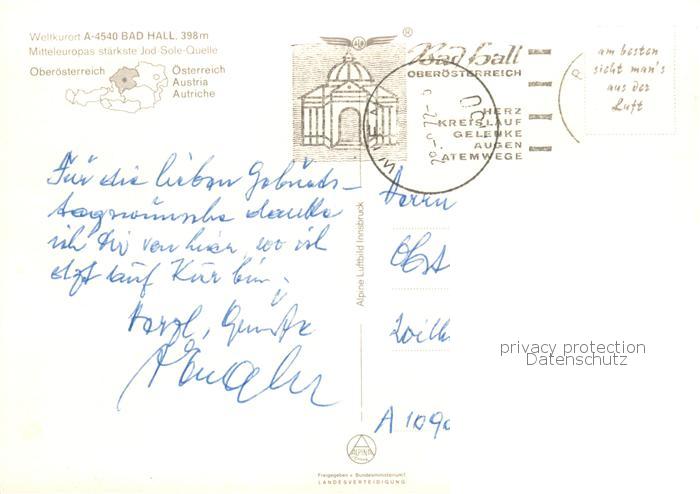 Weltkurort A-4540 BAD HALL, 398m
Mitteleuropas stärkste Jod-Sole-Quelle
Oberösterreich
Österreich
Austria
Autriche
®
Bad Hall
OBERÖSTERREICH
HERZ
KREISLAUF
GELENKE
AUGEN
ATEMWEGE
am besten
sieht man's
aus der
Luft
Für die lieben Geburts-
tagswünsche danke
ich Dir von hier, wo ich
dzt auf Kur bin.
Herzl.
Alpine Luftbild Innsbruck
Herrn
Obst
A 1090
privacy protection
Datenschutz
ALPINE
Freigegeben v. Bundesministerium f.
LANDESVERTEIDIGUNG